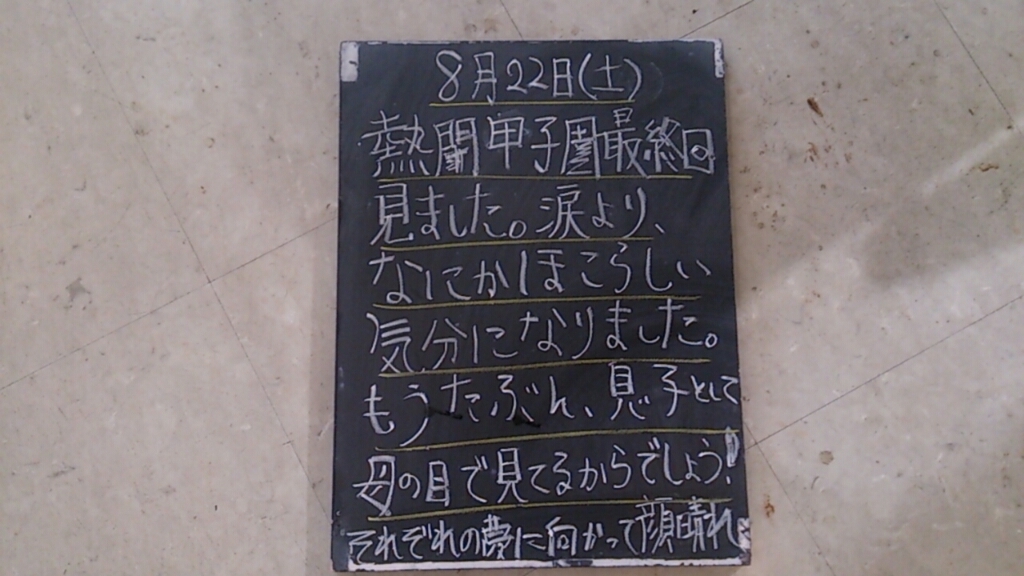 8月22日(土)
熱闘甲子園最終回
見ました。涙より、
なにかほこらしい
気分になりました。
もうたぶん、息子として
母の目で見てるからでしょう!
それぞれの夢に向かって顔晴れ